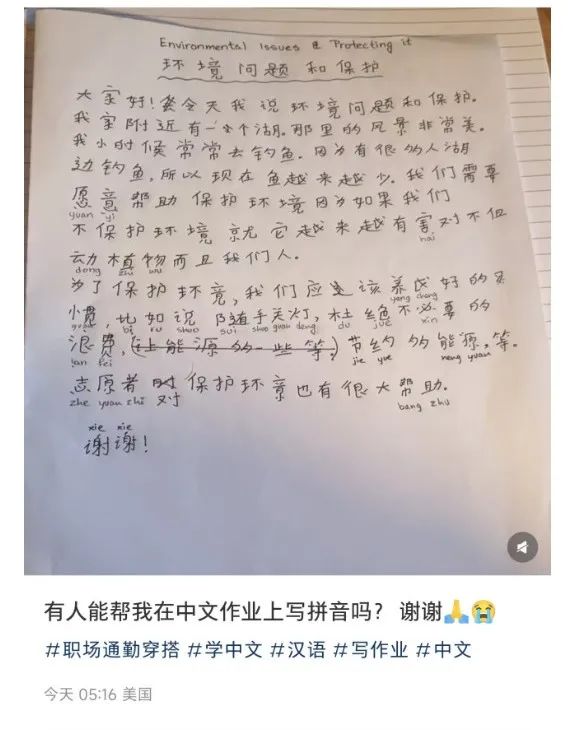 Environmental Issues & Protecting it
环境问题和保护
大家好!今天我说环境问题和保护。
我家附近有一个湖。那里的风景非常美。
我小时候常常去钓鱼。因为有很多的人湖
边钓鱼,所以现在鱼越来越少。我们需要
愿意帮助保护环境因为如果我们
yuan yi
不保护环境就它越来越有害对不但
hai
动植物而且我们人。
dong zhi wu
为了保护环境,我们应该养成好的习
yang cheng
惯,比如说随手关灯,杜绝不必要的
guan bi ru shuo sui shou guan deng du jue
浪费,节约的能源,等。
fei jie yue neng yuan
志愿者对保护环境也有很大帮助。
zhe yuan zhi bang zhu
xie xie
谢谢!
有人能帮我在中文作业上写拼音吗? 谢谢🙏😭
#职场通勤穿搭 #学中文 #汉语 #写作业 #中文
今天 05:16 美国